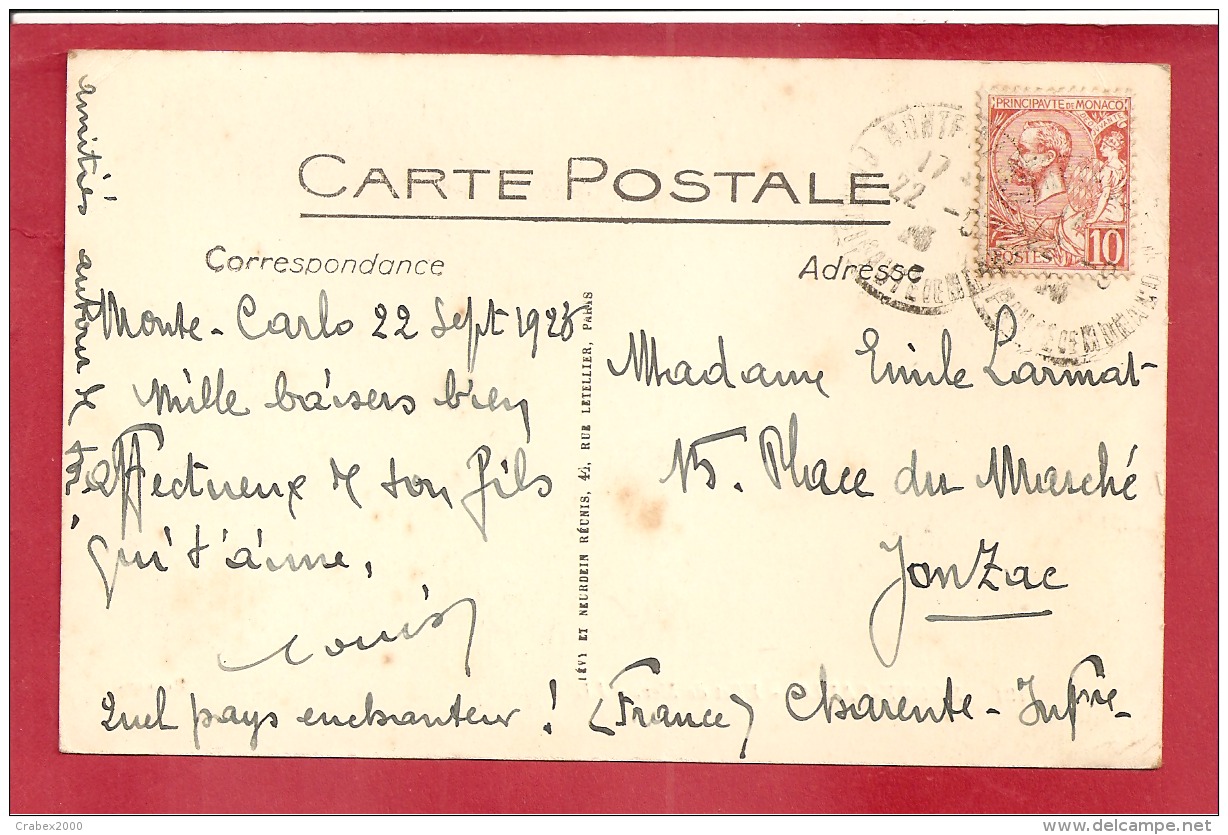 CARTE POSTALE
Correspondance
Adresse
PRINCIPAVTE DE MONACO
POSTES
10
MONTE
17
22
Monte-Carlo 22 Sept 1926
Mille baisers bien
affectueux de ton fils
qui t'aime,
Louis
Quel pays enchanteur !
amitiés autour de toi.
LÉVY ET NEURDEIN RÉUNIS, 44, RUE LETELLIER, PARIS
Madame Emile Larmat
15. Place du Marché
Jonzac
(France) Charente-Infre-
Crabex2000
www.delcampe.net